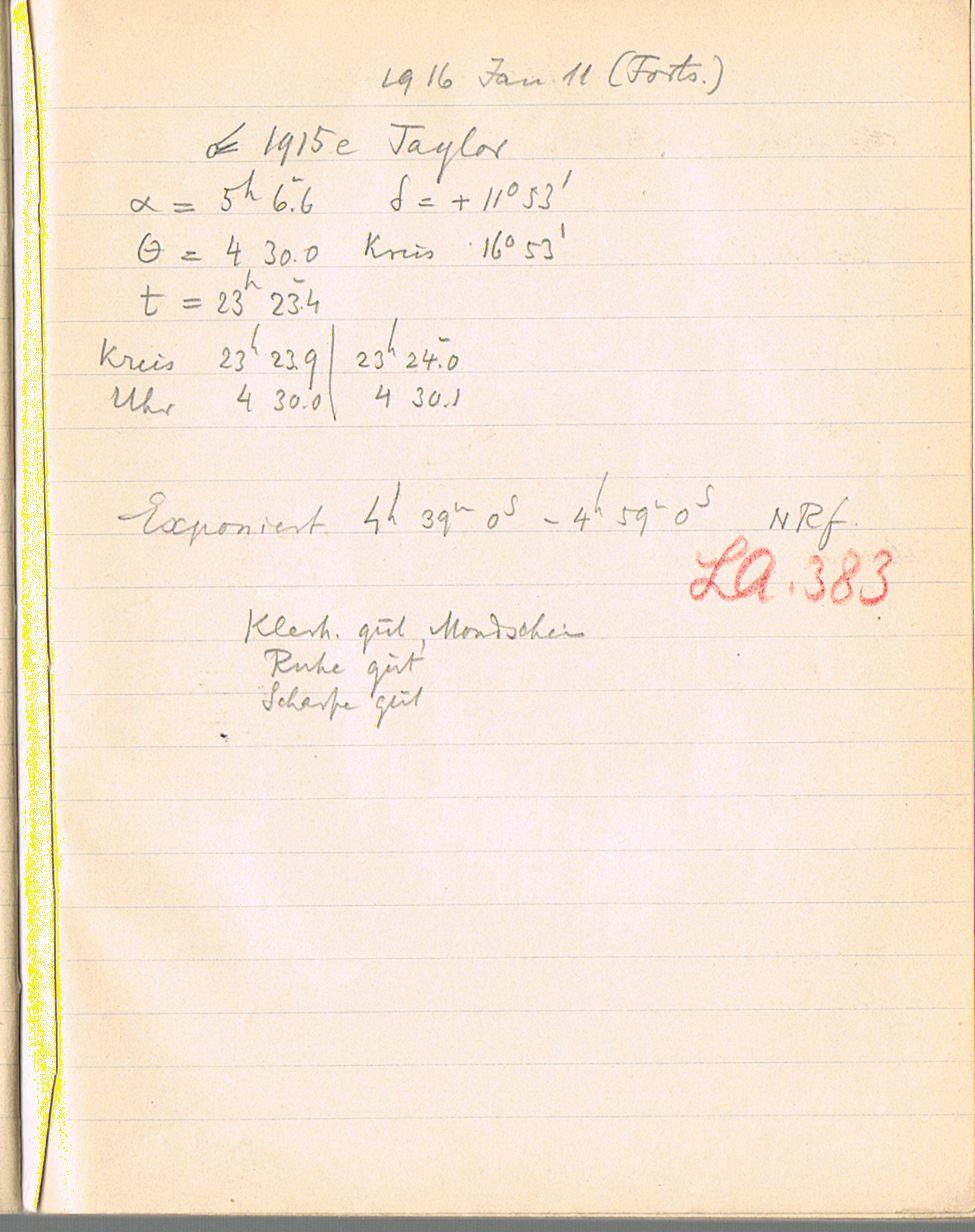 1916 Jan 11 (Forts.)
☄ 1915e Taylor
α = 5h 6.6 δ = + 11° 53'
θ = 4 30.0 Kreis 16° 53'
t = 23h 23.4
Kreis 23h 23.9 | 23h 24.0
Uhr 4 30.0 | 4 30.1
Exponiert 4h 39m 0s – 4h 59m 0s NRf.
LA.383
gut, Mondschein
Ruhe gut
Schärfe gut